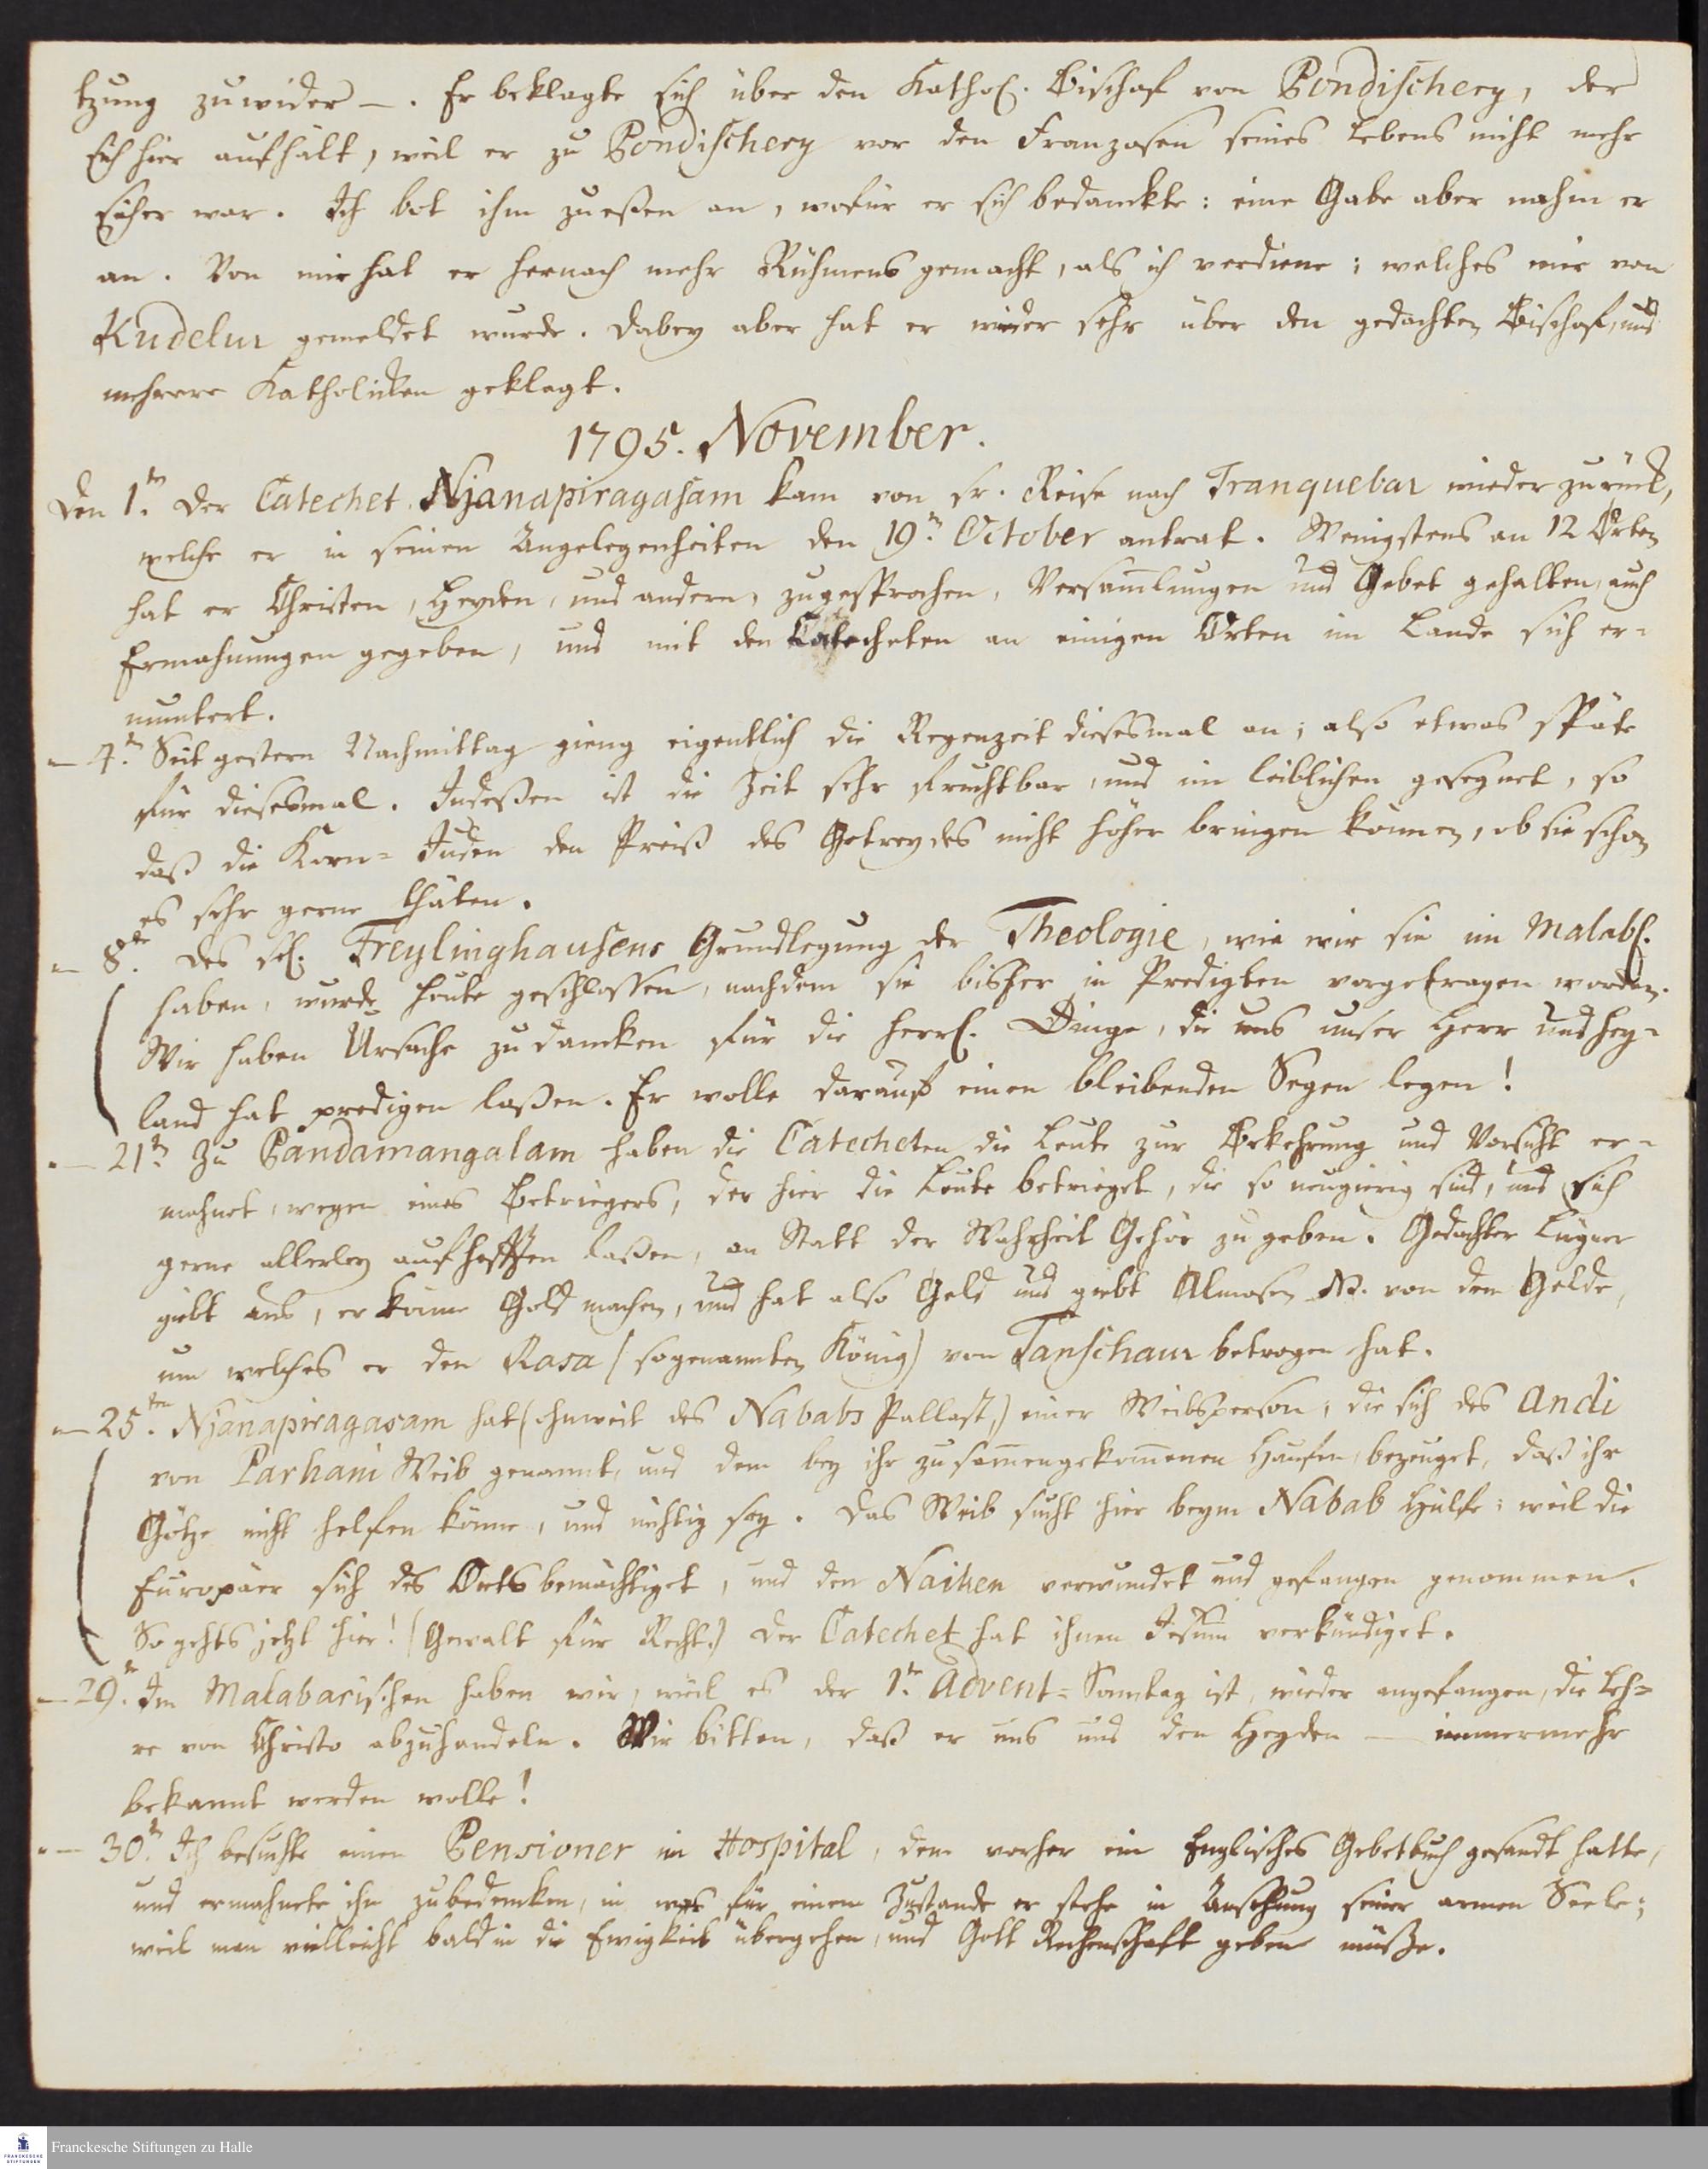 tzung zuwider —. Er beklagte sich über den Kathol. Bischof von Pondischery, der
sich hier aufhält, weil er zu Pondischery vor den Franzosen seines Lebens nicht mehr
sicher war. Ich bot ihm zu eßen an, wofür er sich bedanckte: eine Gabe aber nahm er
an. Von mir hat er hernach mehr Rühmens gemacht, als ich verdiene; welches mir von
Kudelur gemeldet wurde. Dabey aber hat er wieder sehr über den gedachten Bischof, und
mehrere Katholicken geklagt.
1795. November.
Den 1.tn Der Catechet Njanapiragasam kam von sr. Reise nach Tranquebar wieder zurück,
welche er in seinen Angelegenheiten den 19.tn October antrat. Wenigstens an 12 Orten
hat er Christen, Heyden, und andern, zugesprochen, Versam̅lungen und Gebet gehalten, auch
Ermahnungen gegeben, und mit den Catecheten an einigen Orten im Lande sich er-
muntert.
— 4.tn Seit gestern Nachmittag gieng eigentlich die Regenzeit diesesmal an; also etwas späte
für diesesmal. Indeßen ist die Zeit sehr fruchtbar, und im leiblichen gesegnet, so
daß die Korn= Juden den Preiß des Getreydes nicht höher bringen können, ob sie schon
es sehr gerne thäten.
— 8.te Des sel. Freylinghausens Grundlegung der Theologie, wie wir sie im Malab.
haben, wurde heute geschlossen, nachdem sie bisher in Predigten vorgetragen worden.
Wir haben Ursache zu dancken für die herrl. Dinge, die uns unser Herr und Hey-
land hat predigen laßen. Er wolle darauf einen bleibenden Segen legen!
— 21.tn Zu Pandamangalam haben die Catecheten die Leute zur Bekehrung und Vorsicht er-
mahnet, wegen eines Betriegers, der hier die Leute betrieget, die so neugierig sind, und sich
gerne allerley aufhefften laßen, an Statt der Wahrheit Gehör zu geben. Gedachter Lügner
giebt aus, er könne Gold machen, und hat also Geld und giebt Almosen NB. von dem Gelde,
um welches er den Rasa (sogenannten König) von Tanschaur betrogen hat.
— 25.ten Njanapiragasam hat (ohnweit des Nababs Pallast,) einer Weibsperson, die sich des Andi
von Parhani Weib genannt, und dem bey ihr zusam̅engekom̅enen Haufen, bezeuget, daß ihr
Götze nicht helfen könne, und nichtig sey. Das Weib sucht hier beym Nabab Hülfe; weil die
Europäer sich des Orts bemächtiget, und den Naiken verwundet und gefangen genommen.
So gehts jetzt hier! (Gewalt für Recht.) Der Catechet hat ihnen Jesum verkündiget.
— 29.tn Im Malabarischen haben wir, weil es der 1.te Advent= Sonntag ist, wieder angefangen, die Leh=
re von Christo abzuhandeln. Wir bitten, daß er uns und den Heyden — immermehr
bekannt werden wolle!
— 30.tn Ich besuchte einen Pensioner im Hospital, dem vorher ein Englisches Gebetbuch gesandt hatte,
und ermahnete ihn zu bedencken, in was für einem Zustande er stehe in Ansehung seiner armen Seele;
weil man vielleicht bald in die Ewigkeit übergehen, und Gott Rechenschaft geben müße.
Franckesche Stiftungen zu Halle
FRANCKESCHE
STIFTUNGEN